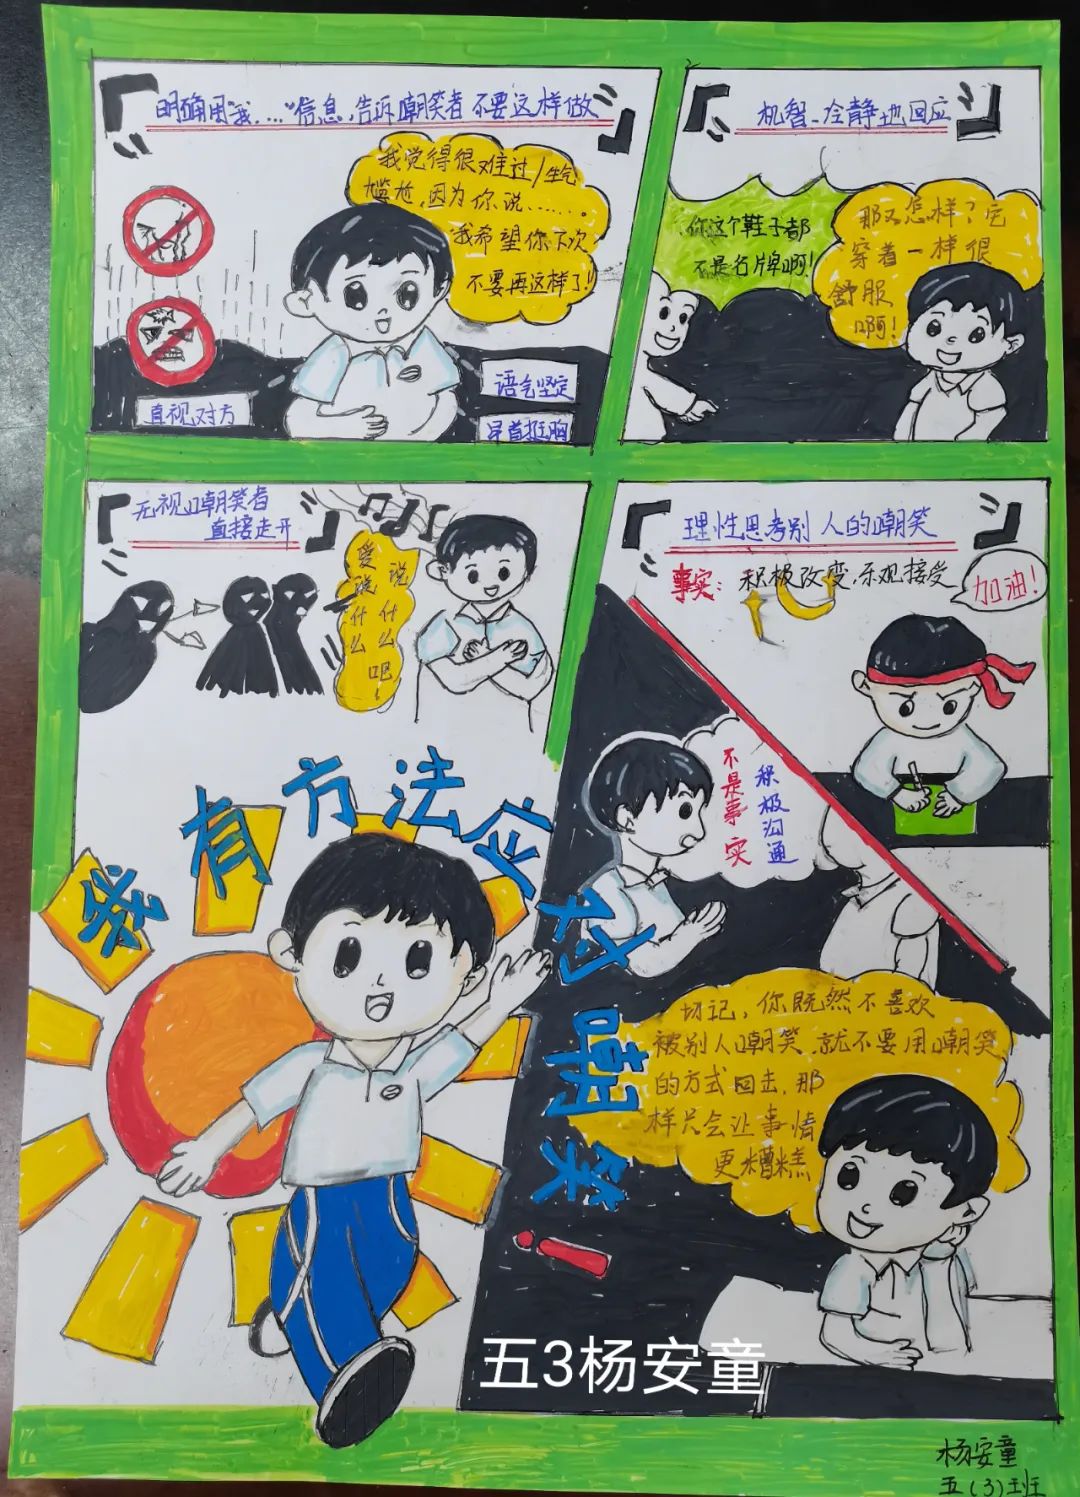 明确用"我……"信息,告诉嘲笑者不要这样做
我觉得很难过/生气
尴尬,因为你说……。
我希望你下次
不要再这样了!
直视对方
语气坚定
昂首挺胸
机智、冷静地回应
你这个鞋子都
不是名牌啊!
那又怎样?它
穿着一样很
舒服
啊!
无视嘲笑者
直接走开
爱说什么
说什么吧!
理性思考别人的嘲笑
事实:积极改变,乐观接受
加油!
不是事实
积极沟通
我有方法应对嘲笑!
切记,你既然不喜欢
被别人嘲笑,就不要用嘲笑
的方式回击,那
样只会让事情
更糟糕
五3杨安童
杨安童
五(3)班